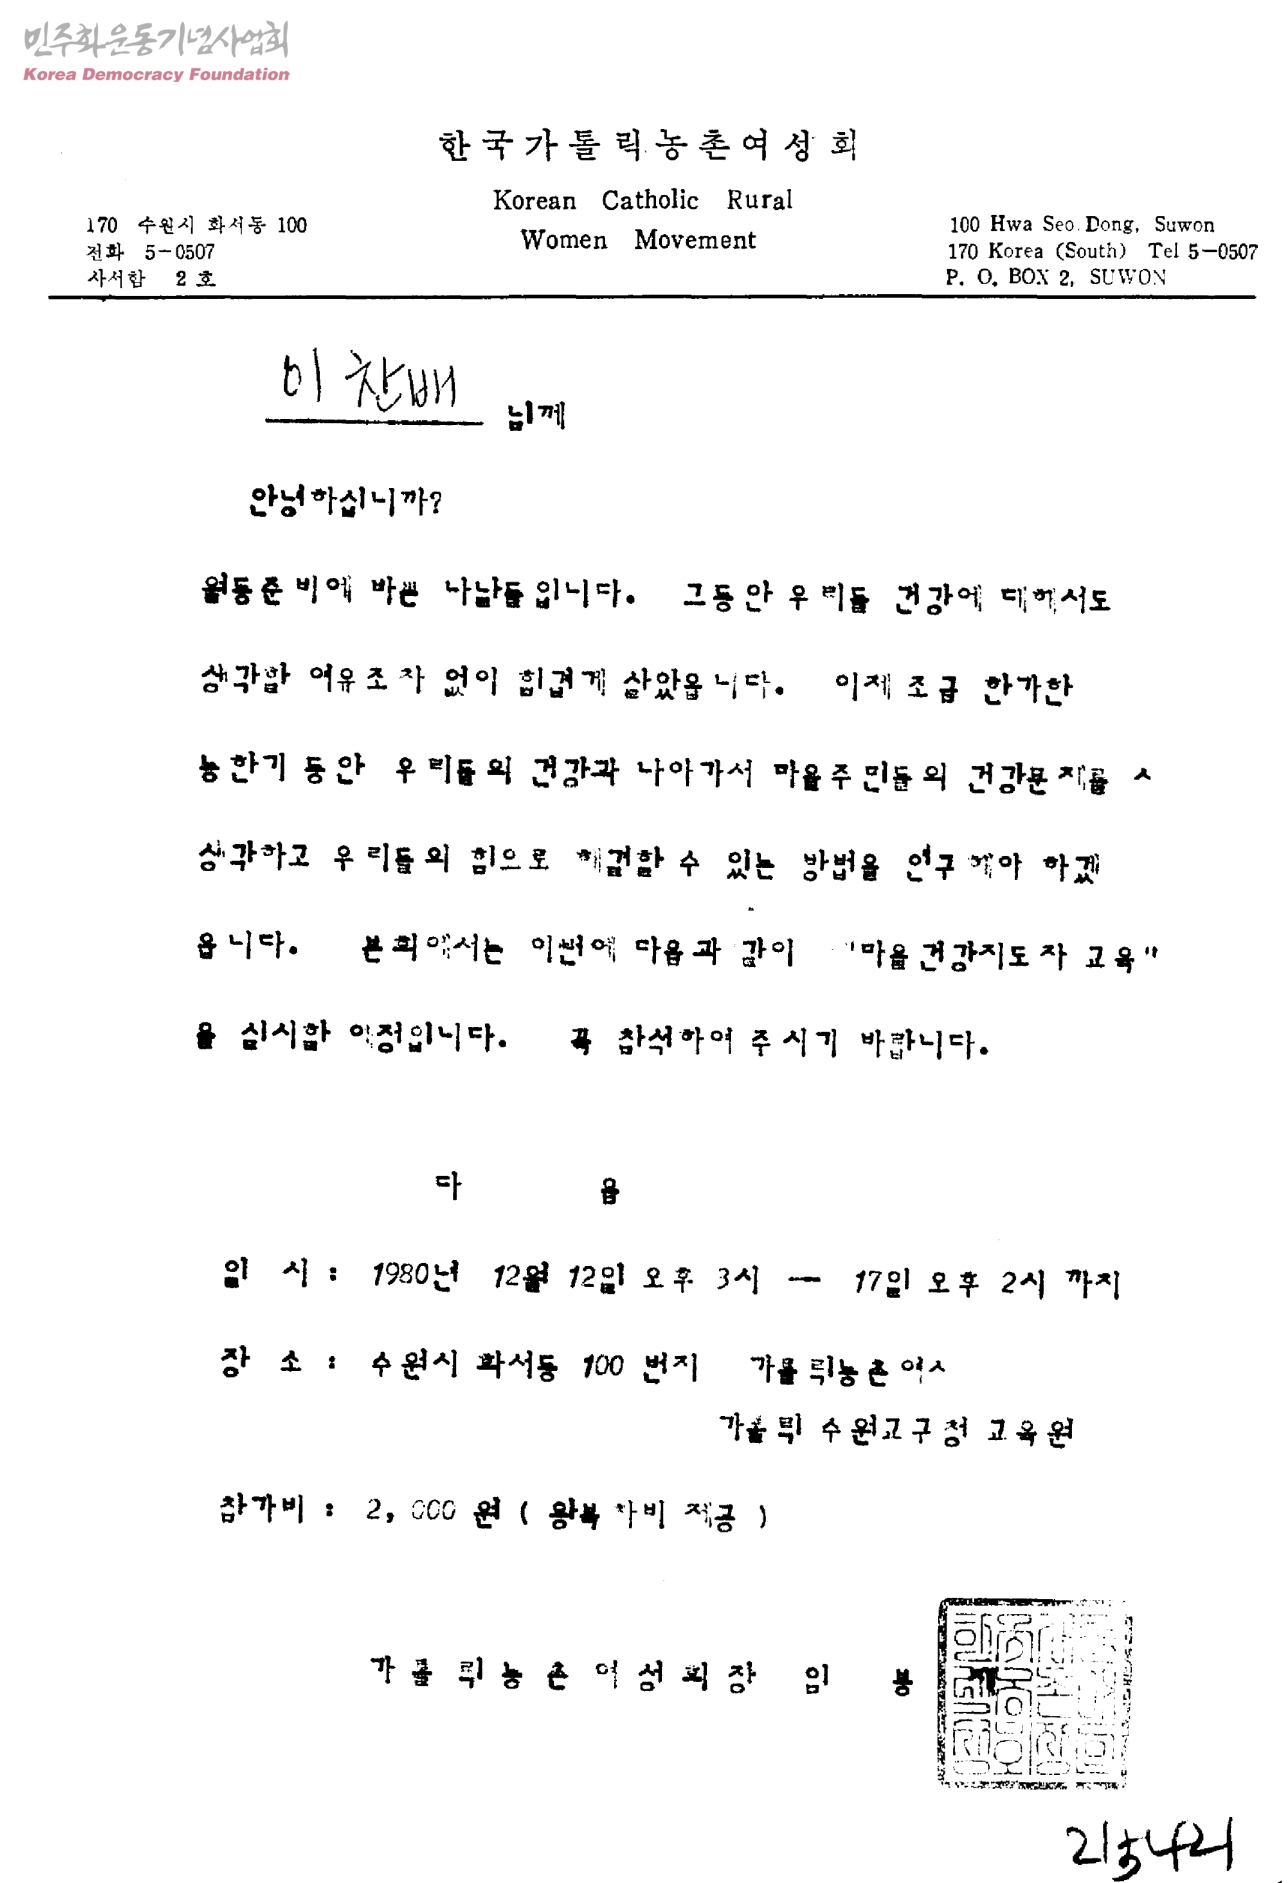 민주화운동기념사업회
Korea Democracy Foundation
한국가톨릭농촌여성회
Korean Catholic Rural
Women Movement
170 수원시 화서동 100
전화 5-0507
사서함 2호
100 Hwa Seo Dong, Suwon
170 Korea (South) Tel 5-0507
P. O. BOX 2, SUWON
이찬배 님께
안녕하십니까?
월동준비에 바쁜 나날들입니다. 그동안 우리들 건강에 대해서도
생각할 여유조차 없이 힘겹게 살았읍니다. 이제 조금 한가한
농한기 동안 우리들의 건강과 나아가서 마을주민들의 건강문제를 ㅅ
생각하고 우리들의 힘으로 해결할 수 있는 방법을 연구해야 하겠
읍니다. 본회에서는 이번에 다음과 같이 "마을건강지도자 교육"
을 실시할 예정입니다. 꼭 참석하여 주시기 바랍니다.
다 음
일 시 : 1980년 12월 12일 오후 3시 — 17일 오후 2시 까지
장 소 : 수원시 화서동 100 번지 가톨릭농촌여ㅅ
가톨릭 수원교구청 교육원
참가비 : 2,000 원 ( 왕복 차비 제공 )
가톨릭농촌여성회장 임 봉